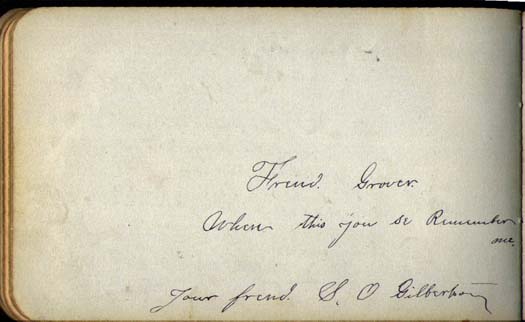 Frend. Grover.
When this you se Remember
me.
Your frend. S. O Gilbertson